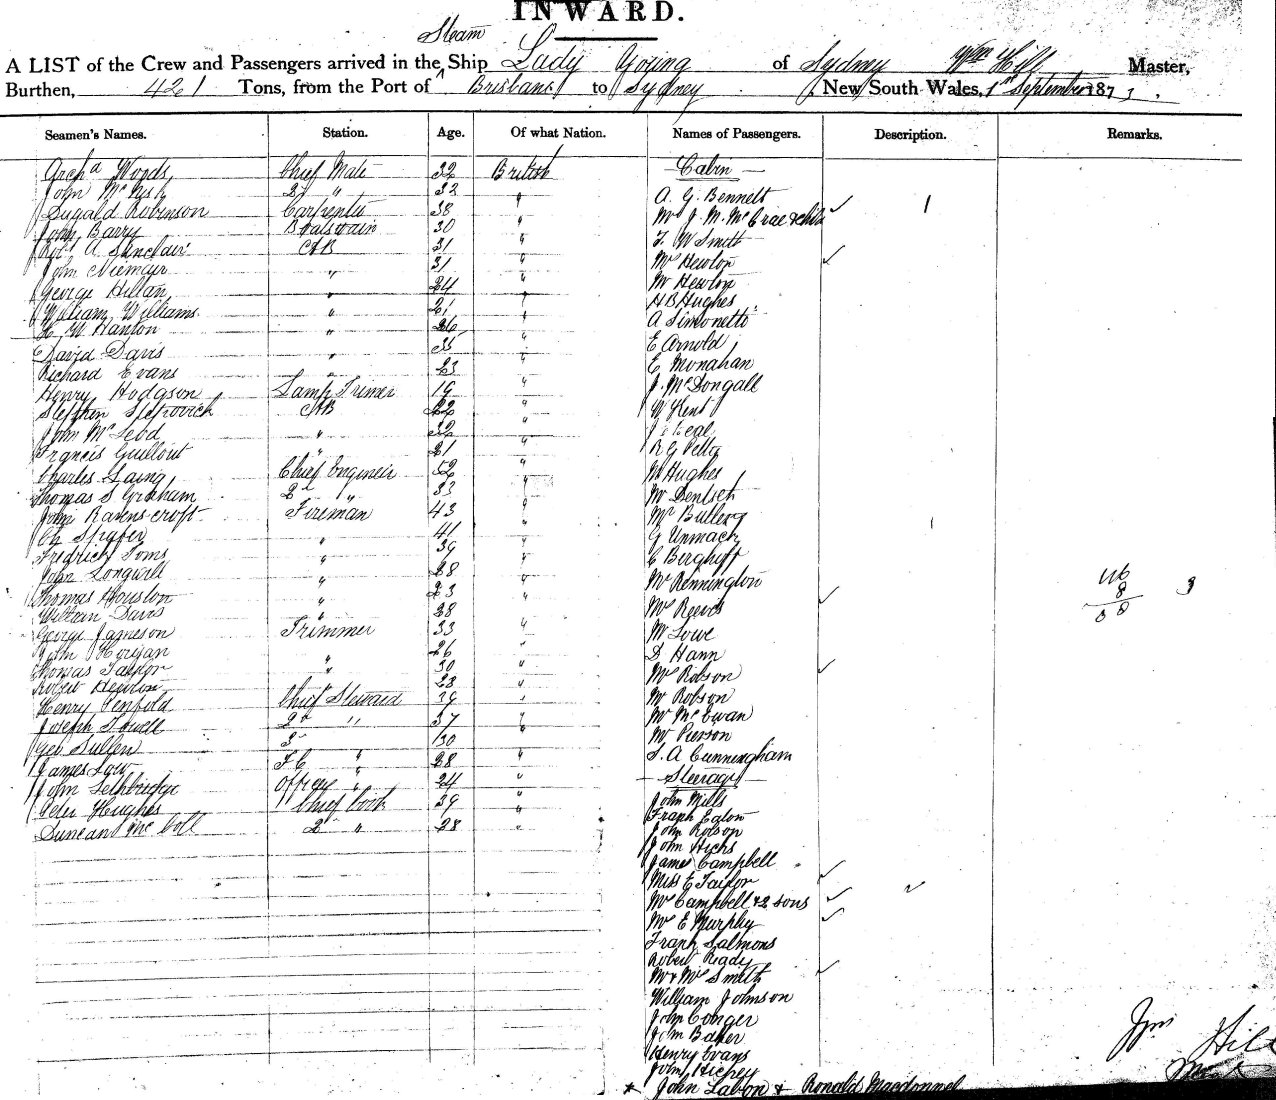 INWARD.
Steam
A LIST of the Crew and Passengers arrived in the Ship Lady Young of Sydney Wm Hill Master,
Burthen, 421 Tons, from the Port of Brisbane to Sydney, New South Wales, 1st September 1873.
Seamen's Names. Station. Age. Of what Nation. Names of Passengers. Description. Remarks.
Archd Woods Chief Mate 32 British Cabin
John McLish 2d " 32 " A. G. Bennett
Dugald Robinson Carpenter 38 " Mrs J. M. McCrae & child 1
John Barry Boatswain 30 "
Robt A Sinclair AB 31 " F W Smith
John Niemeyer " 31 " Mrs Hewton
George Hillan " 24 " Mr Hewton
William Williams " 21 " H B Hughes
H. W Hanton " 26 " A Simonetti
David Davis " 35 " E Arnold
Richard Evans " 23 " E Monahan
Henry Hodgson Lamp Trimer 19 " J. McDongall
Stephen AB 22 " W Kent
John McLeod " 32 " J
Francis Guillout " 21 " R G Petty
Charles Laing Chief Engineir 52 " Mr Hughes
Thomas S Graham 2d " 33 " Mr Dentsch
John Ravenscroft Fireman 43 " Mr Butler
" 41 " G Unmack
Fredrich Toms " 39 " C Berghoff
John Longwill " 28 " Mr Rennington
Thomas Houston " 23 " Mrs Reeves 3
William Davis " 28 Mr Lowe
George Jameson Trimmer 33 " D Hann
John Horgan " 26 " Mrs Robson
Thomas Taylor " 30 " Mr Robson
Robert Hewton 28 " Mr McEwan
Henry Penfold Chief Steward 39 " Mr Pierson
Joseph Lowell 2d " 37 " S. A Cunningham
Geo Sullen 3 30 " Steerage
James Law F.C " 28 " John Mills
John Lethbridge " 24 " Frank Eaton
Peter Hughes Chief Cook 39 " John Robson
Duncan McColl 2 " 28 " John Hicks
James Campbell
Miss E Taylor
Mrs Campbell & 2 sons
Mrs E Murphy
Frank Salmons
Robert Ready
Mr & Mrs Smith
William Johnson
John Conger
John Baker
Henry Evans
John Hickey
John Labon & Ronald Macdonnel
Wm Hill